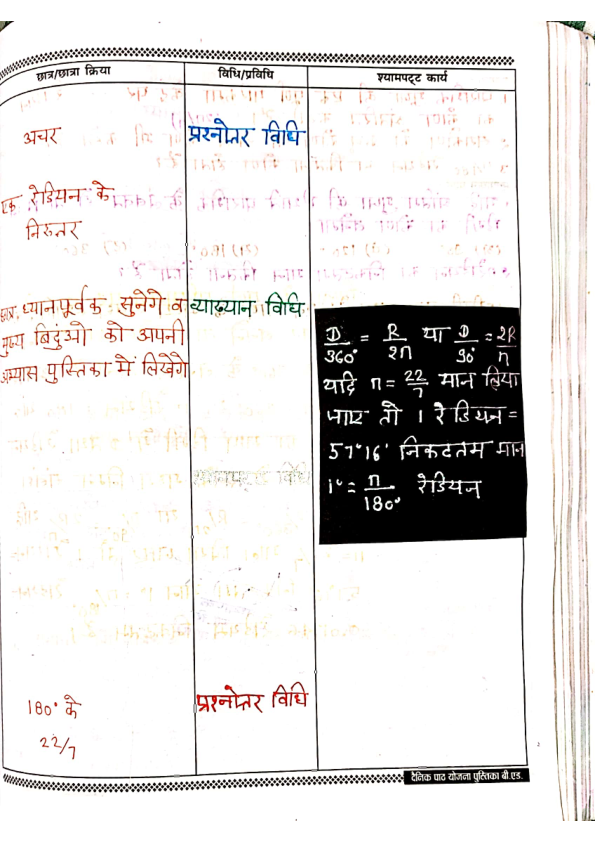 छात्र/छात्रा क्रिया
विधि/प्रविधि
श्यामपट्ट कार्य
अचर
प्रश्नोतर विधि
एक रेडियन के
निरूतर
छात्र ध्यानपूर्वक सुनेगे व
मुख्य बिदुंओ को अपनी
अभ्यास पुस्तिका में लिखेंगे
व्याख्यान विधि
D/360° = R/2π या D/90° = 2R/π
यदि π = 22/7 मान लिया
जाए तो 1 रेडियन =
57°16' निकटतम मान
1° = π/180° रेडियन
180° के
22/7
प्रश्नोतर विधि
दैनिक पाठ योजना पुस्तिका बी.एड.